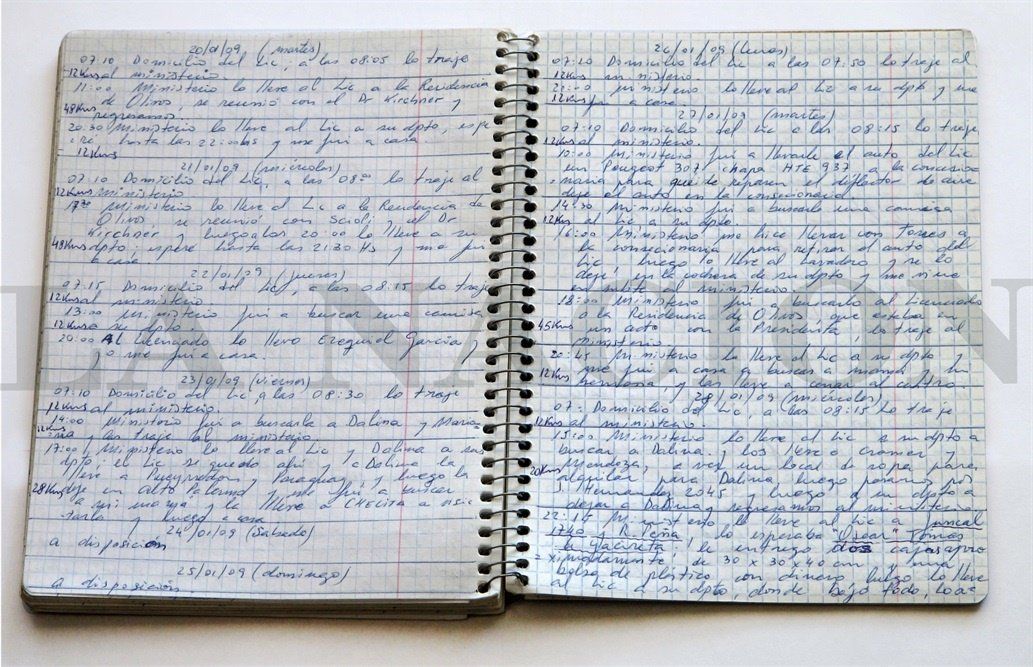 20/01/09 (martes)
07:10 Domicilio del Lic, a las 08:05 lo traje
12Kms al ministerio.
11:00 Ministerio lo lleve al Lic a la Residencia
de Olivos, se reunió con el Dr Kirchner y
48Kms regresamos.
20:30 Ministerio lo lleve al Lic a su dpto, espe
re hasta las 22:00hs y me fui a casa.
12Kms
21/01/09 (miércoles)
07:10 Domicilio del Lic, a las 08:00 lo traje al
12Kms ministerio.
17:30 Ministerio lo lleve al Lic a la Residencia de
Olivos se reunió con Scioli y el Dr
Kirchner, luego a las 20:00 lo lleve a su
48Kms dpto; espere hasta las 21:30 Hs y me fui
a casa.
22/01/09 (jueves)
07:15 Domicilio del Lic, a las 08:15 lo traje
12Kms al ministerio.
13:00 Ministerio fui a buscar una camisa
12Kms a su dpto.
20:00 Al Licenciado lo llevo Ezequiel García y
yo me fui a casa.
23/01/09 (viernes)
07:10 Domicilio del Lic a las 08:30 lo traje
12Kms al ministerio.
14:00 Ministerio fui a buscarla a Dalina y Maria
12Kms na y las traje al ministerio.
17:00 Ministerio lo lleve al Lic y Dalina a su
dpto; el Lic se quedo ahi y a Dalina la
lleve a Pueyrredon y Paraguay y luego la
deje en Alto Palermo y me fui a buscar
28Kms a mi mamá y la lleve a CHECITA a
y luego a casa
24/01/09 (Sabado)
a disposición
25/01/09 (domingo)
a disposición.
26/01/09 (lunes)
07:10 Domicilio del Lic a las 07:50 lo traje al
12Kms ministerio.
22:00 Ministerio lo lleve al Lic a su dpto y me
12Kms fui a casa.
27/01/09 (martes)
07:10 Domicilio del Lic a las 08:15 lo traje
12Kms al ministerio.
10:00 Ministerio fui a llevarle el auto del Lic
un Peugeot 307, chapa HTE 937 a la concesio
naria para que le reparen el deflector de aire
deje el auto en la concesionaria.
14:30 Ministerio fui a buscarle una camisa
12Kms al Lic a su dpto.
16:00 Ministerio, me hice llevar con Torres a
la concesionaria para retirar el auto del
Lic luego lo lleve al lavadero y se lo
deje en la cochera de su dpto y me vine
en subte al ministerio.
18:00 Ministerio fui a buscarlo al Licenciado
a la Residencia de Olivos, que estaba en
45Kms un acto con la Presidenta, lo traje al
ministerio.
20:45 Ministerio lo lleve al Lic a su dpto y
12Kms me fui a casa a buscar a mamá y mi
hermosa, y las lleve a cenar al centro.
28/01/09 (miércoles)
07: Domicilio del Lic a las 08:15 lo traje
12Kms al ministerio.
15:00 Ministerio lo lleve al Lic a su dpto a
buscar a Dalina y los lleve a Cramer y
Mendoza, a ver un local de ropa para
20Kms alquilar para Dalina luego pasamos por
J. Hernandez 2045 y luego a su dpto a
dejar a Dalina y regresamos al ministerio.
22:14 Ministerio lo lleve al Lic a Juncal
1740 y R. Peña, lo esperaba "Oscar" Tomas
le entrego dos cajas apro
ximadamente de 30 x 30 x 40 cm y una
bolsa de plástico con dinero, luego lo lleve
al Lic a su dpto, donde bajo todo, lo a-
LA NACION